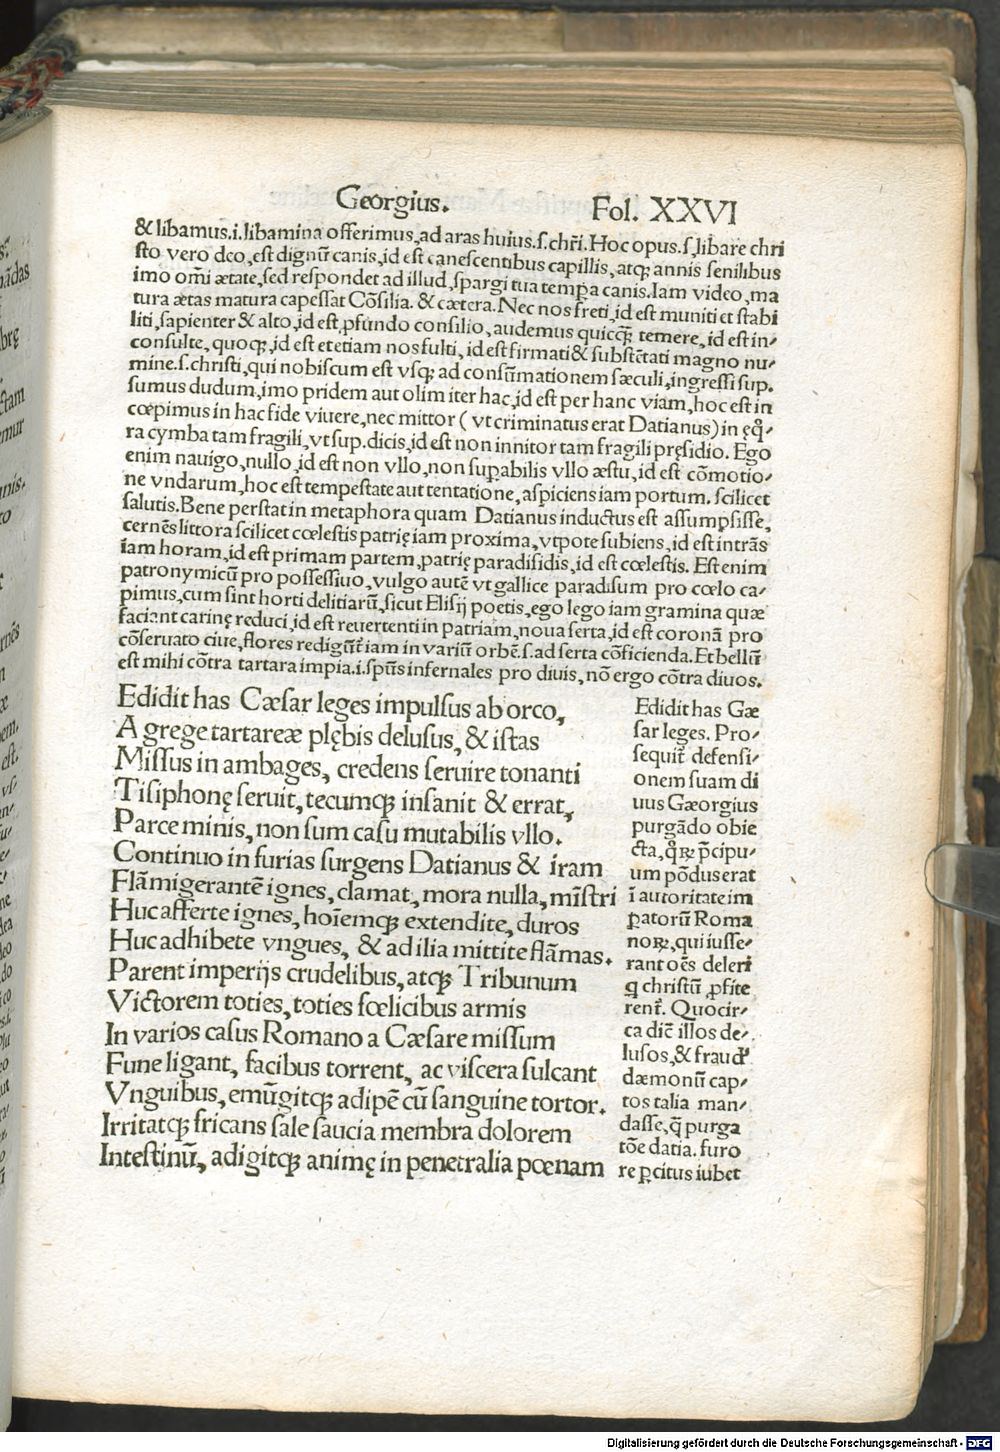 Georgius. Fol. XXVI
& libamus.i.libamina offerimus,ad aras huius.ſ.chr̄i.Hoc opus.ſ,libare chri
ſto vero deo,eſt dignū canis,id eſt caneſcentibus capillis,atq; annis ſenilibus
imo om̄i ætate,ſed reſpondet ad illud,ſpargi tua temꝑa canis.Iam video,ma
tura ætas matura capeſſat Cōſilia. & cætera. Nec nos freti,id eſt muniti et ſtabi
liti,ſapienter & alto,id eſt,ꝓfundo conſilio,audemus quicq̄; temere,id eſt in⸗
conſulte, quoq;,id eſt etetiam nos fulti, id eſt firmati & ſubſtētati magno nu⸗
mine.ſ.chriſti,qui nobiſcum eſt vſq; ad conſūmationem ſæculi,ingreſſi ſup.
ſumus dudum,imo pridem aut olim iter hac,id eſt per hanc viam,hoc eſt in
cœpimus in hac fide viuere,nec mittor ( vt criminatus erat Datianus) in ęq̊⸗
ra cymba tam fragili,vt ſup. dicis,id eſt non innitor tam fragili pręſidio. Ego
enim nauigo,nullo,id eſt non vllo,non ſuꝑabilis vllo æſtu,id eſt cōmotio⸗
ne vndarum,hoc eſt tempeſtate aut tentatione,aſpiciens iam portum. ſcilicet
ſalutis.Bene perſtat in metaphora quam Datianus inductus eſt aſſumpſiſſe,
cernēs littora ſcilicet cœleſtis patrię iam proxima,vtpote ſubiens,id eſt intrās
iam horam,id eſt primam partem,patrię paradiſidis,id eſt cœleſtis. Eſt enim
patronymicū pro poſſeſſiuo,vulgo autē vt gallice paradiſum pro cœlo ca⸗
pimus,cum ſint horti delitiarū,ſicut Eliſij poetis,ego lego iam gramina quæ
faciant carinę reduci,id eſt reuertenti in patriam,noua ſerta,id eſt coronā pro
cōſeruato ciue,flores redigūt̄ iam in variū orbē.ſ.ad ſerta cōficienda.Et bellū
eſt mihi cōtra tartara impia.i.ſpūs infernales pro diuis,nō ergo cōtra diuos.
Edidit has Cæſar leges impulſus ab orco,
A grege tartareæ plębis deluſus, & iſtas
Miſſus in ambages, credens ſeruire tonanti
Tiſiphonę ſeruit, tecumq; inſanit & errat,
Parce minis, non ſum caſu mutabilis vllo.
Continuo in furias ſurgens Datianus & iram
Flāmigerantē ignes, clamat, mora nulla, mīſtri
Huc afferte ignes, hoīemq; extendite, duros
Huc adhibete vngues, & ad ilia mittite flāmas.
Parent imperijs crudelibus, atq; Tribunum
Victorem toties, toties fœlicibus armis
In varios caſus Romano a Cæſare miſſum
Fune ligant, facibus torrent, ac viſcera ſulcant
Vnguibus, emūgitq; adipē cū ſanguine tortor.
Irritatq; fricans ſale ſaucia membra dolorem
Inteſtinū, adigitq; animę in penetralia pœnam
Edidit has Gæ
ſar leges. Pro⸗
ſequit̄ defenſi⸗
onem ſuam di
uus Gæorgius
purgādo obie
cta,q̊ꝝ p̄cipu⸗
um pōdus erat
ī autoritate im
ꝑatorū Roma
noꝝ,qui iuſſe⸗
rant oēs deleri
q̨ chriſtū ꝓfite
rent̄. Quocir⸗
ca dicē illos de⸗
luſos,& fraud̛
dæmonū cap⸗
tos talia man⸗
daſſe,q̄ purga
tōe datia. furo
re ꝑcitus iubet
Digitalisierung gefördert durch die Deutsche Forschungsgemeinschaft - DFG